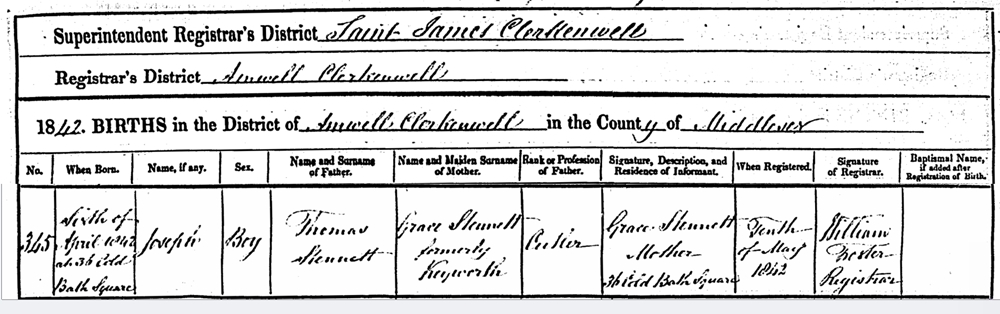 Superintendent Registrar's District Saint James Clerkenwell
Registrar's District Amwell Clerkenwell
1842. BIRTHS in the District of Amwell Clerkenwell in the County of Middlesex
No. When Born. Name, if any. Sex. Name and Surname of Father. Name and Maiden Surname of Mother. Rank or Profession of Father. Signature, Description, and Residence of Informant. When Registered. Signature of Registrar. Baptismal Name, if added after Registration of Birth.
345
Sixth of
April 1842
at 36 Cold
Bath Square
Joseph
Boy
Thomas
Stennett
Grace Stennett
formerly
Keyworth
Cutler
Grace Stennett
Mother
36 Cold Bath Square
Tenth
of May
1842
William
Registrar